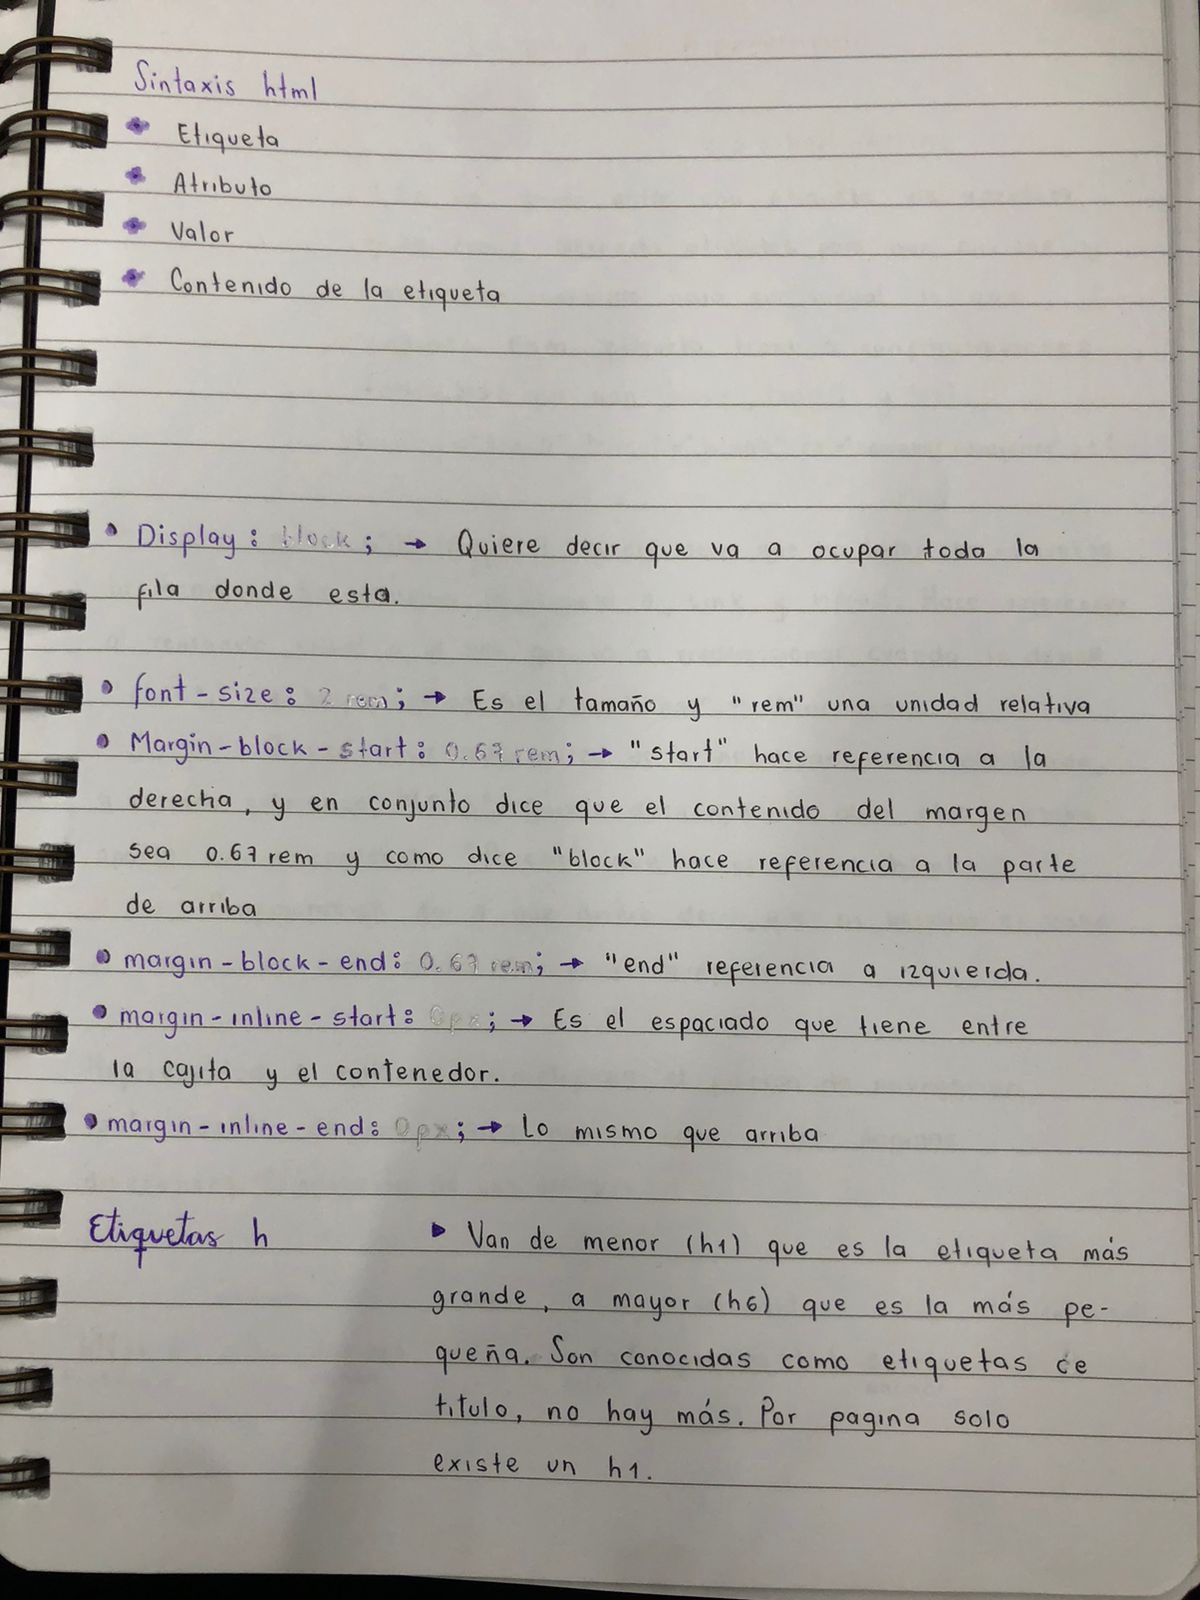 Sintaxis html
Etiqueta
Atributo
Valor
Contenido de la etiqueta
• Display: block; → Quiere decir que va a ocupar toda la
fila donde esta.
• font-size: 2 rem; → Es el tamaño y "rem" una unidad relativa
• Margin-block-start: 0.67 rem; → "start" hace referencia a la
derecha, y en conjunto dice que el contenido del margen
sea 0.67 rem y como dice "block" hace referencia a la parte
de arriba
• margin-block-end: 0.67 rem; → "end" referencia a izquierda.
• margin-inline-start: 0px; → Es el espaciado que tiene entre
la cajita y el contenedor.
• margin-inline-end: 0px; → Lo mismo que arriba
Etiquetas h ▸ Van de menor (h1) que es la etiqueta más
grande, a mayor (h6) que es la más pe-
queña. Son conocidas como etiquetas de
titulo, no hay más. Por pagina solo
existe un h1.